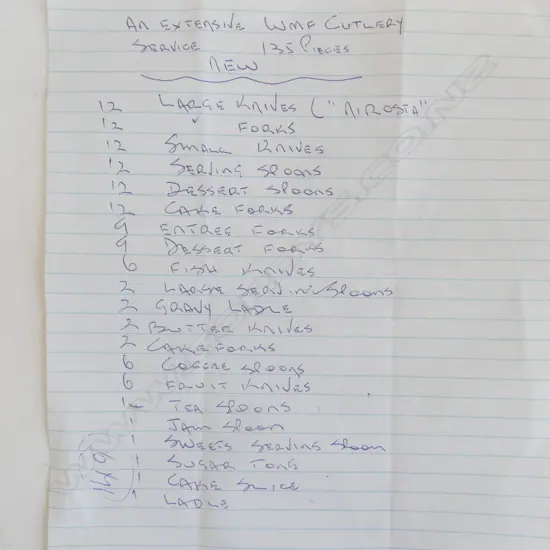 AN EXTENSIVE WMF CUTLERY
SERVICE 135 PIECES
NEW
12 LARGE KNIVES ("NIROSTA"
12 " FORKS
12 SMALL KNIVES
12 SERVING SPOONS
12 DESSERT SPOONS
12 CAKE FORKS
9 ENTREE FORKS
9 DESSERT FORKS
6 FISH KNIVES
2 LARGE SERVING SPOONS
2 GRAVY LADLE
2 BUTTER KNIVES
2 CAKE FORKS
6 COFFEE SPOONS
6 FRUIT KNIVES
12 TEA SPOONS
1 JAM SPOON
1 SWEETS SERVING SPOON
1 SUGAR TONG
1 CAKE SLICE
1 LADLE